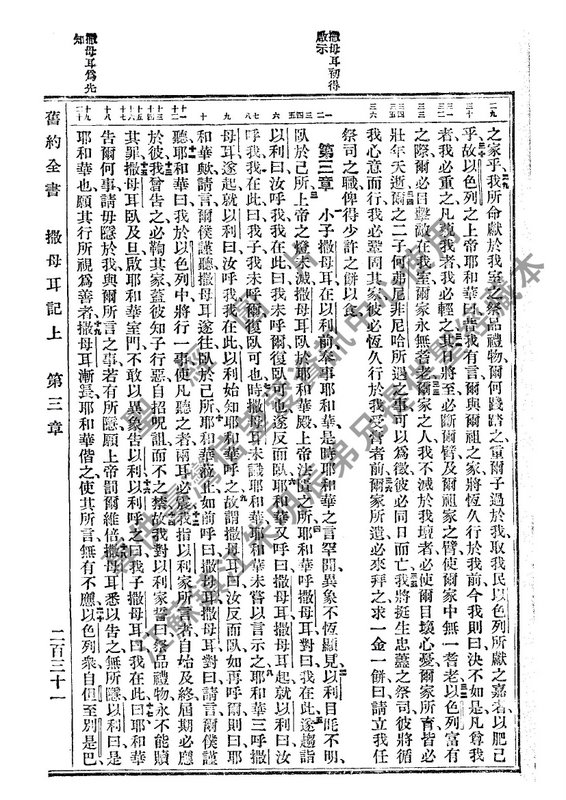 撒母耳初得
啟示
撒母耳為先
知
之家乎我所命獻於我室之祭品禮物何踐踏之重爾子過於我取我民以色列所獻之嘉者以肥己
乎故以色列之上帝耶和華曰昔我有言爾與爾祖之家將恆久行於我前今我則曰決不如是凡尊我
者我必重之凡藐我者我必輕之其日將至必斷爾臂及爾祖家之臂使爾家中無一耆老以色列富有
之際爾必目擊敵在我室爾家永無耆老爾家之人我不滅於我壇者必使爾目壞心憂爾家所育皆必
壯年夭逝爾之二子何弗尼非尼哈所遇之事可以為徵彼必同日而亡我將挺生忠藎之祭司彼將循
我心意而行我必鞏固其家彼必恆久行於我受膏者前爾家所遺必來拜之求一金一餅曰請立我任
祭司之職俾得少許之餅以食
第三章 小子撒母耳在以利前奉事耶和華是時耶和華之言罕聞異象不恆顯見以利目眊不明
臥於己所上帝之燈未滅撒母耳臥於耶和華殿上帝法匱之所耶和華呼撒母耳對曰我在此遂趨詣
以利曰汝呼我我在此曰我未呼爾復臥可也遂反而臥耶和華又呼曰撒母耳撒母耳起就以利曰汝
呼我我在此曰我子我未呼爾復臥可也時撒母耳未識耶和華耶和華未嘗以言示之耶和華三呼撒
母耳遂起就以利曰汝呼我我在此以利始知耶和華呼之故謂撒母耳曰汝反而臥如再呼爾則曰耶
和華歟請言爾僕謹聽撒母耳遂往臥於己所耶和華蒞止如前呼曰撒母耳撒母耳對曰請言爾僕謹
聽耶和華曰我於以色列中將行一事使凡聽之者兩耳必震我指以利家所言者自始及終屆期必應
於彼我曾告之必鞫其家蓋彼知子行惡自招呪詛而不之禁故我對以利家誓曰祭品禮物永不能贖
其罪撒母耳臥及旦啟耶和華室門不敢以異象告以利以利呼之曰我子撒母耳曰我在此曰耶和華
告爾何事請毋隱於我與爾所言之事若有所隱願上帝罰爾維倍撒母耳悉以告之無所隱以利曰是
耶和華也願其行所視為善者撒母耳漸長耶和華偕之使其所言無有不應以色列衆自但至別是巴
舊約全書 撒母耳記上 第三章 二百三十一